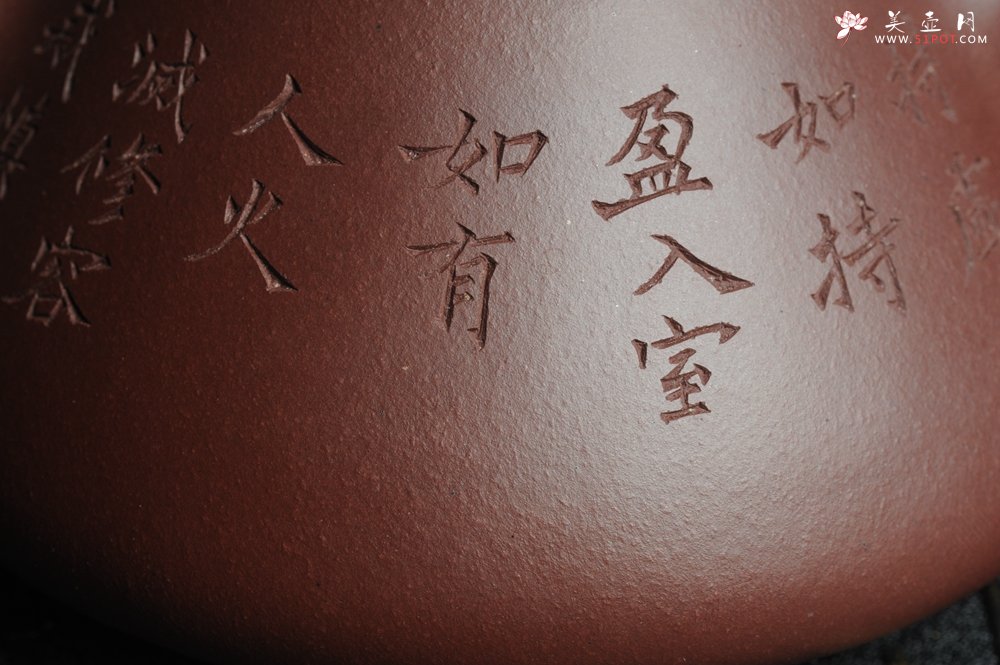 美壶网
WWW.51POT.COM
如持
盈入室
如有
人火
滅修容